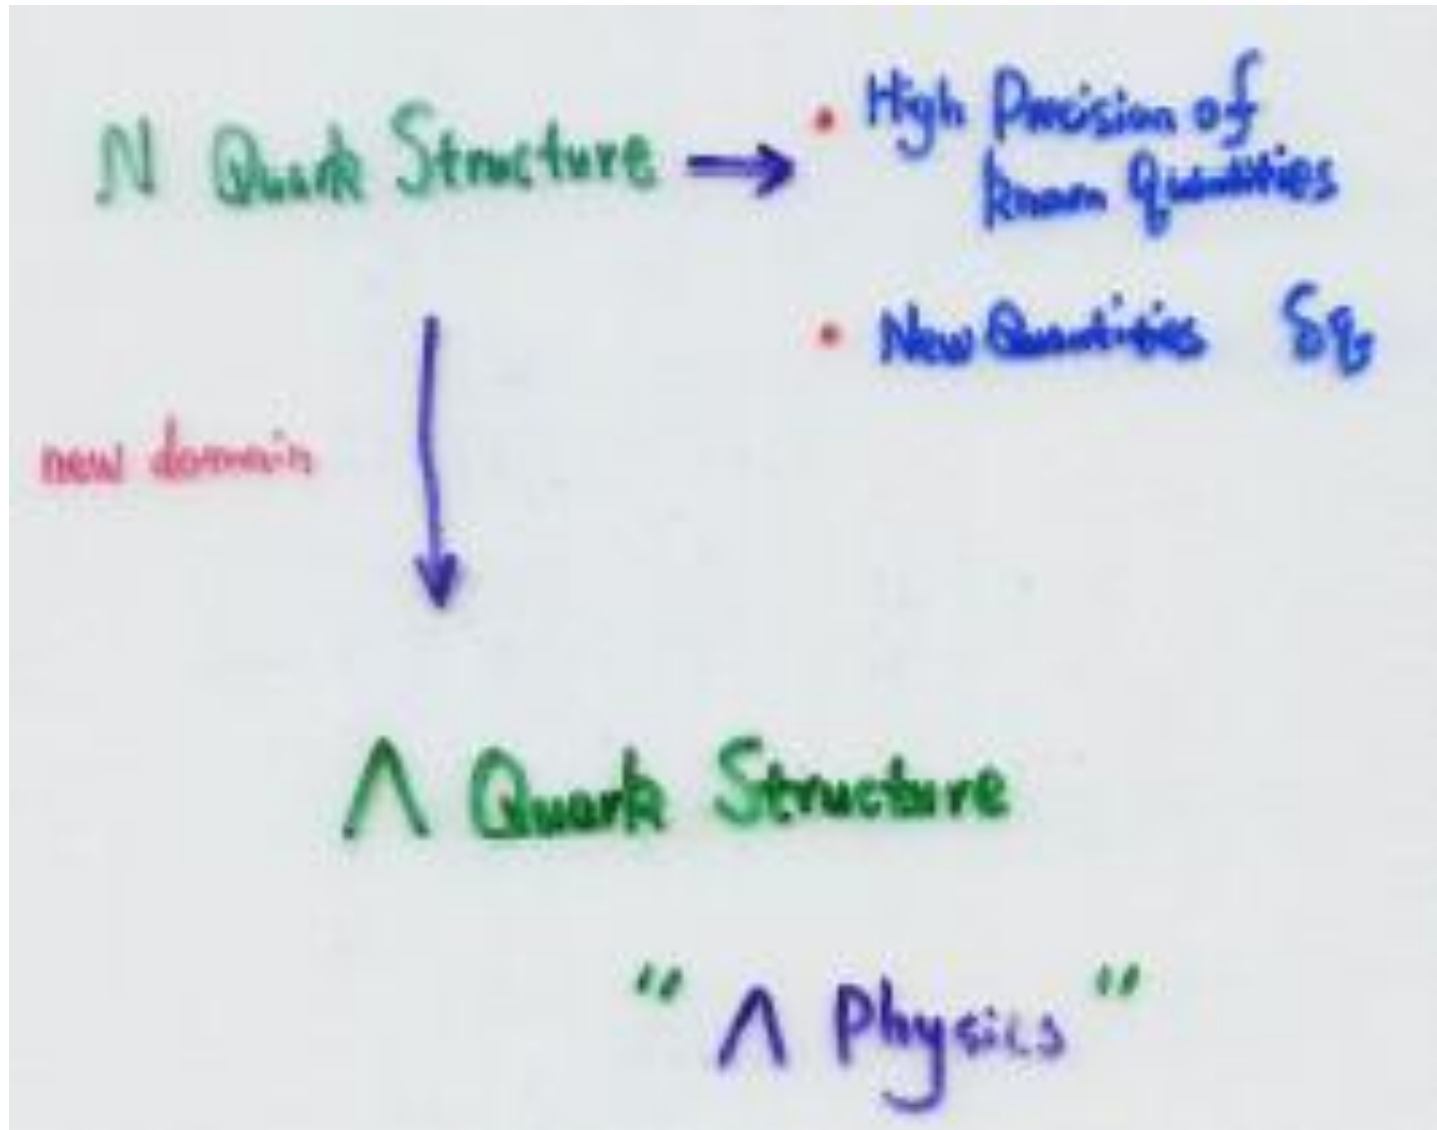 N Quark Structure → • High Precision of
known Quantities
• New Quantities δq
new domain
Λ Quark Structure
“ Λ Physics ”